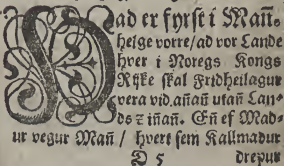 Þad er fyrst i Mañ-
helge vorre/ad vor Lande
hver i Noregs Kongs
Rijke skal Fridheilagur
vera vid añañ utañ Lan-
ds ⁊ iñañ. Eñ ef Mad-
ur vegur Mañ / hvert sem Kallmadur
D 5 drepur